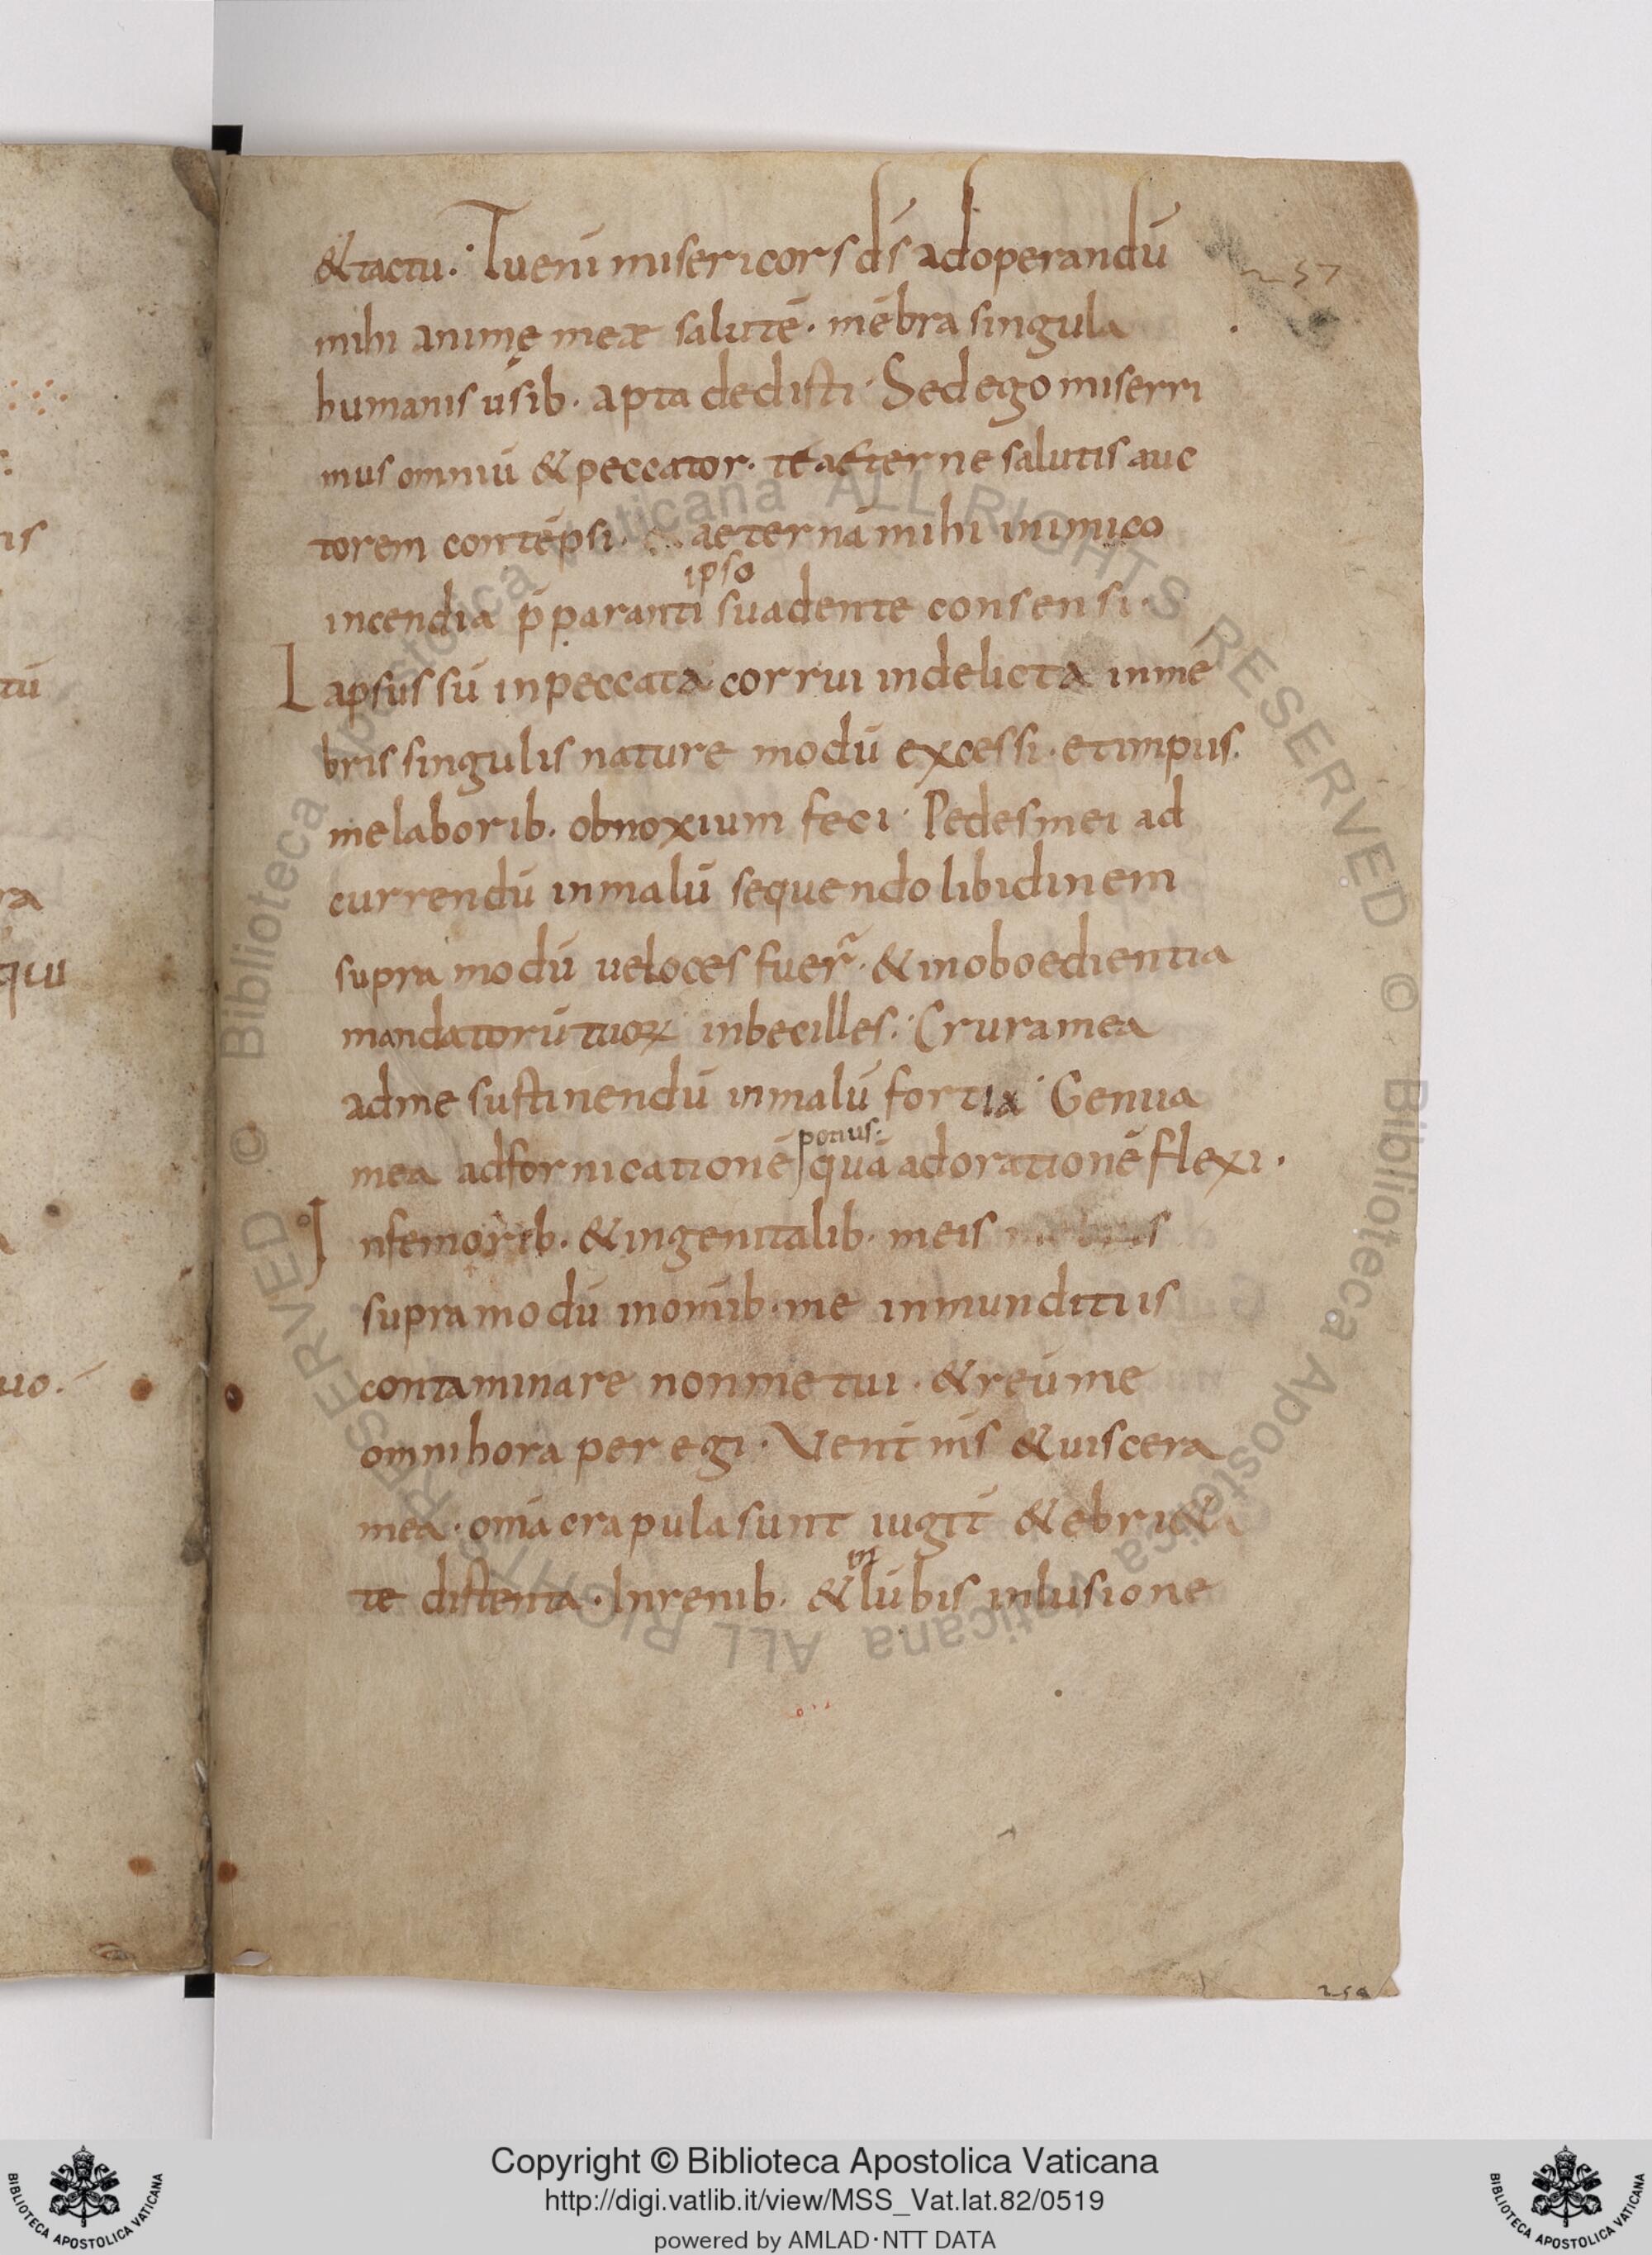 257
& tactu. Tu eni misericors ds ad operandū
mihi anime meae salutē. mēbra singula
humanis usib. apta dedisti. Sed ego miserri
mus omniū & peccator. te aeterne salutis auc
torem contēpsi. & aeternā mihi inimico
ipso
incendia p̄paranti suadente consensi.
Lapsus sū in peccata corrui in delicta in mē
bris singulis nature modū excessi. et impiis.
me laborib. obnoxium feci. Pedes mei ad
currendū in malū sequendo libidinem
supra modū ueloces fuer̃. & in oboedientia
mandatorū tuoꝝ inbecilles. Crura mea
ad me sustinendū in malū fortia. Genua
potius.
mea ad fornicationē quā adorationē flexi.
In femorib. & in genitalib. meis
supra modū in omīb. me inmunditiis
contaminare non metui. & reū me
omni hora peregi. Vent̄ mīs & uiscera
mea. omīa crapula sunt iugit̄ & ebrieta
in
te distenta. In renib. & lūbis inlusione
259
is
tū
ra
qui
uo.
Copyright © Biblioteca Apostolica Vaticana
http://digi.vatlib.it/view/MSS_Vat.lat.82/0519
powered by AMLAD·NTT DATA
BIBLIOTECA APOSTOLICA VATICANA
BIBLIOTECA APOSTOLICA VATICANA
© Biblioteca Apostolica Vaticana ALL RIGHTS RESERVED
© Biblioteca Apostolica Vaticana ALL RIGHTS RESERVED